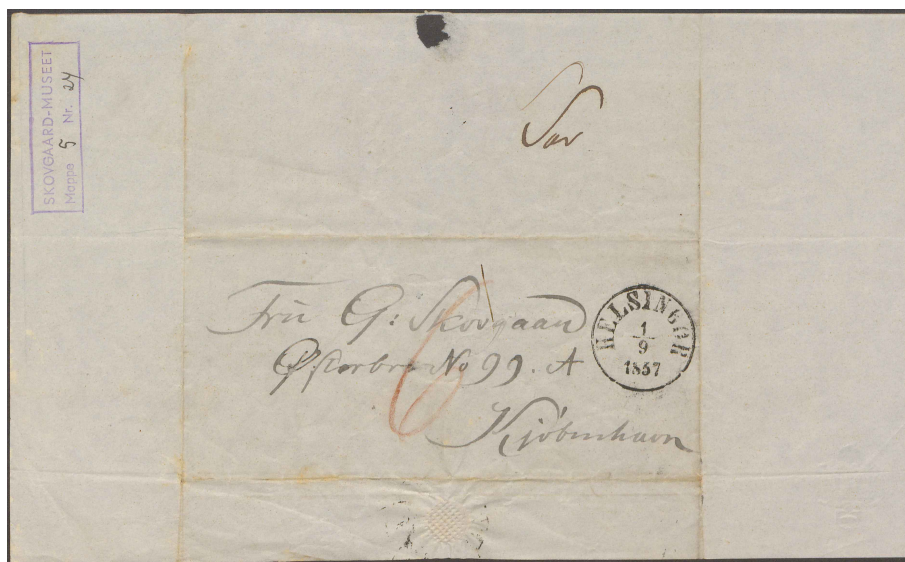 SKOVGAARD-MUSEET
Mappe 5 Nr. 24
Fru G: Skovgaard
Østerbro No 99. A
Kjöbenhavn
HELSINGØR
1
9
1857
6